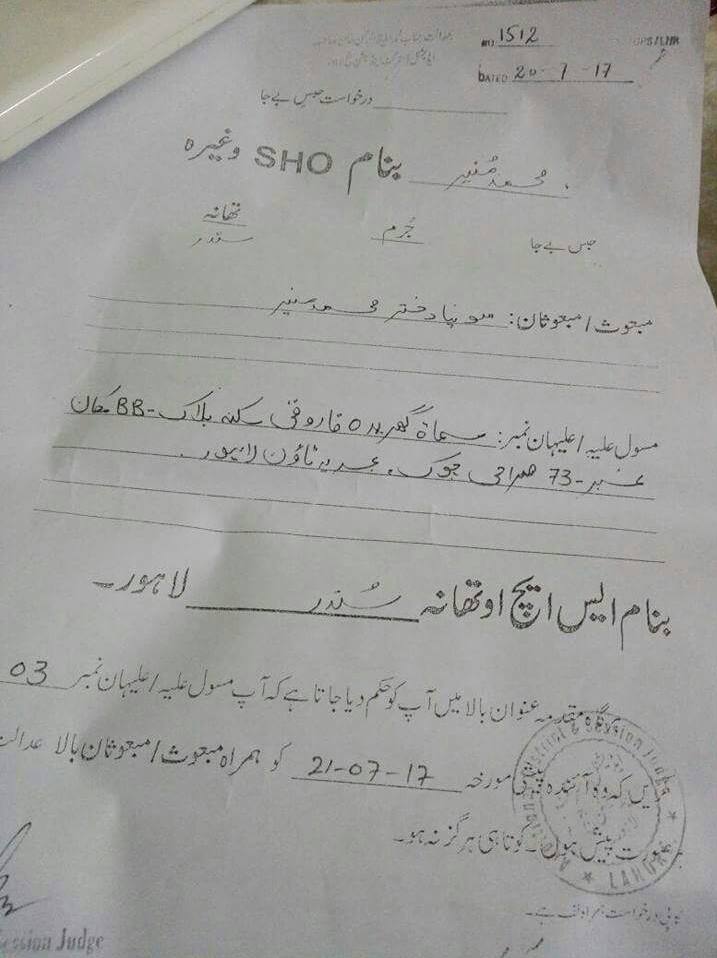 NO 1512
DATED 20-7-17
درخواست حبس بے جا
محمد منیر بنام SHO وغیرہ
حبس بے جا جُرم تھانہ
سندر
مبعوث / مبعوثان: سونیا دختر محمد منیر
مسول علیہ / علیہان نمبر: مسماۃ فاروقی سکنہ بلاک -BB مکان
نمبر -73 چوک، ٹاؤن لاہور۔
بنام ایس ایچ او تھانہ سُندر لاہور۔
مقدمہ عنوان بالا میں آپ کو حکم دیا جاتا ہے کہ آپ مسول علیہ / علیہان نمبر 03
کہ وہ آئندہ پیشی مورخہ 21-07-17 کو ہمراہ مبعوث / مبعوثان بالا عدالت
پیش ہوں۔ کوتاہی ہرگز نہ ہو۔
کاپی درخواست ہمراہ لف ہے۔
District & Session Judge
LAHORE
Session Judge